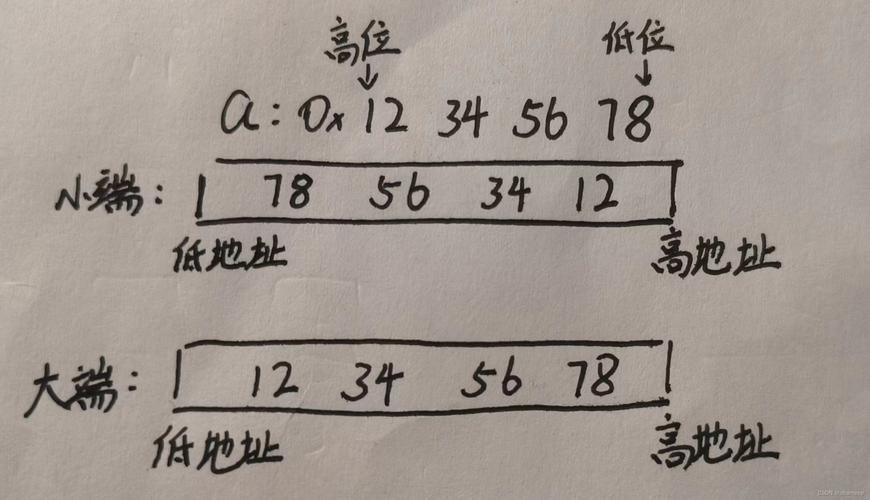 高位 低位
↓ ↓
a: 0x 12 34 56 78
小端: 78 56 34 12
低地址 高地址
大端: 12 34 56 78
低地址 高地址